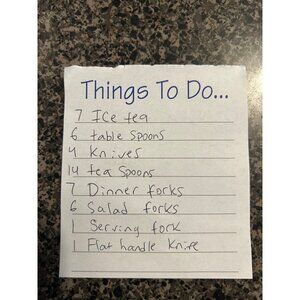 Things To Do...
7 Ice tea
6 table spoons
4 Knives
14 tea spoons
7 Dinner forks
6 Salad forks
1 Serving fork
1 Flat handle Knife